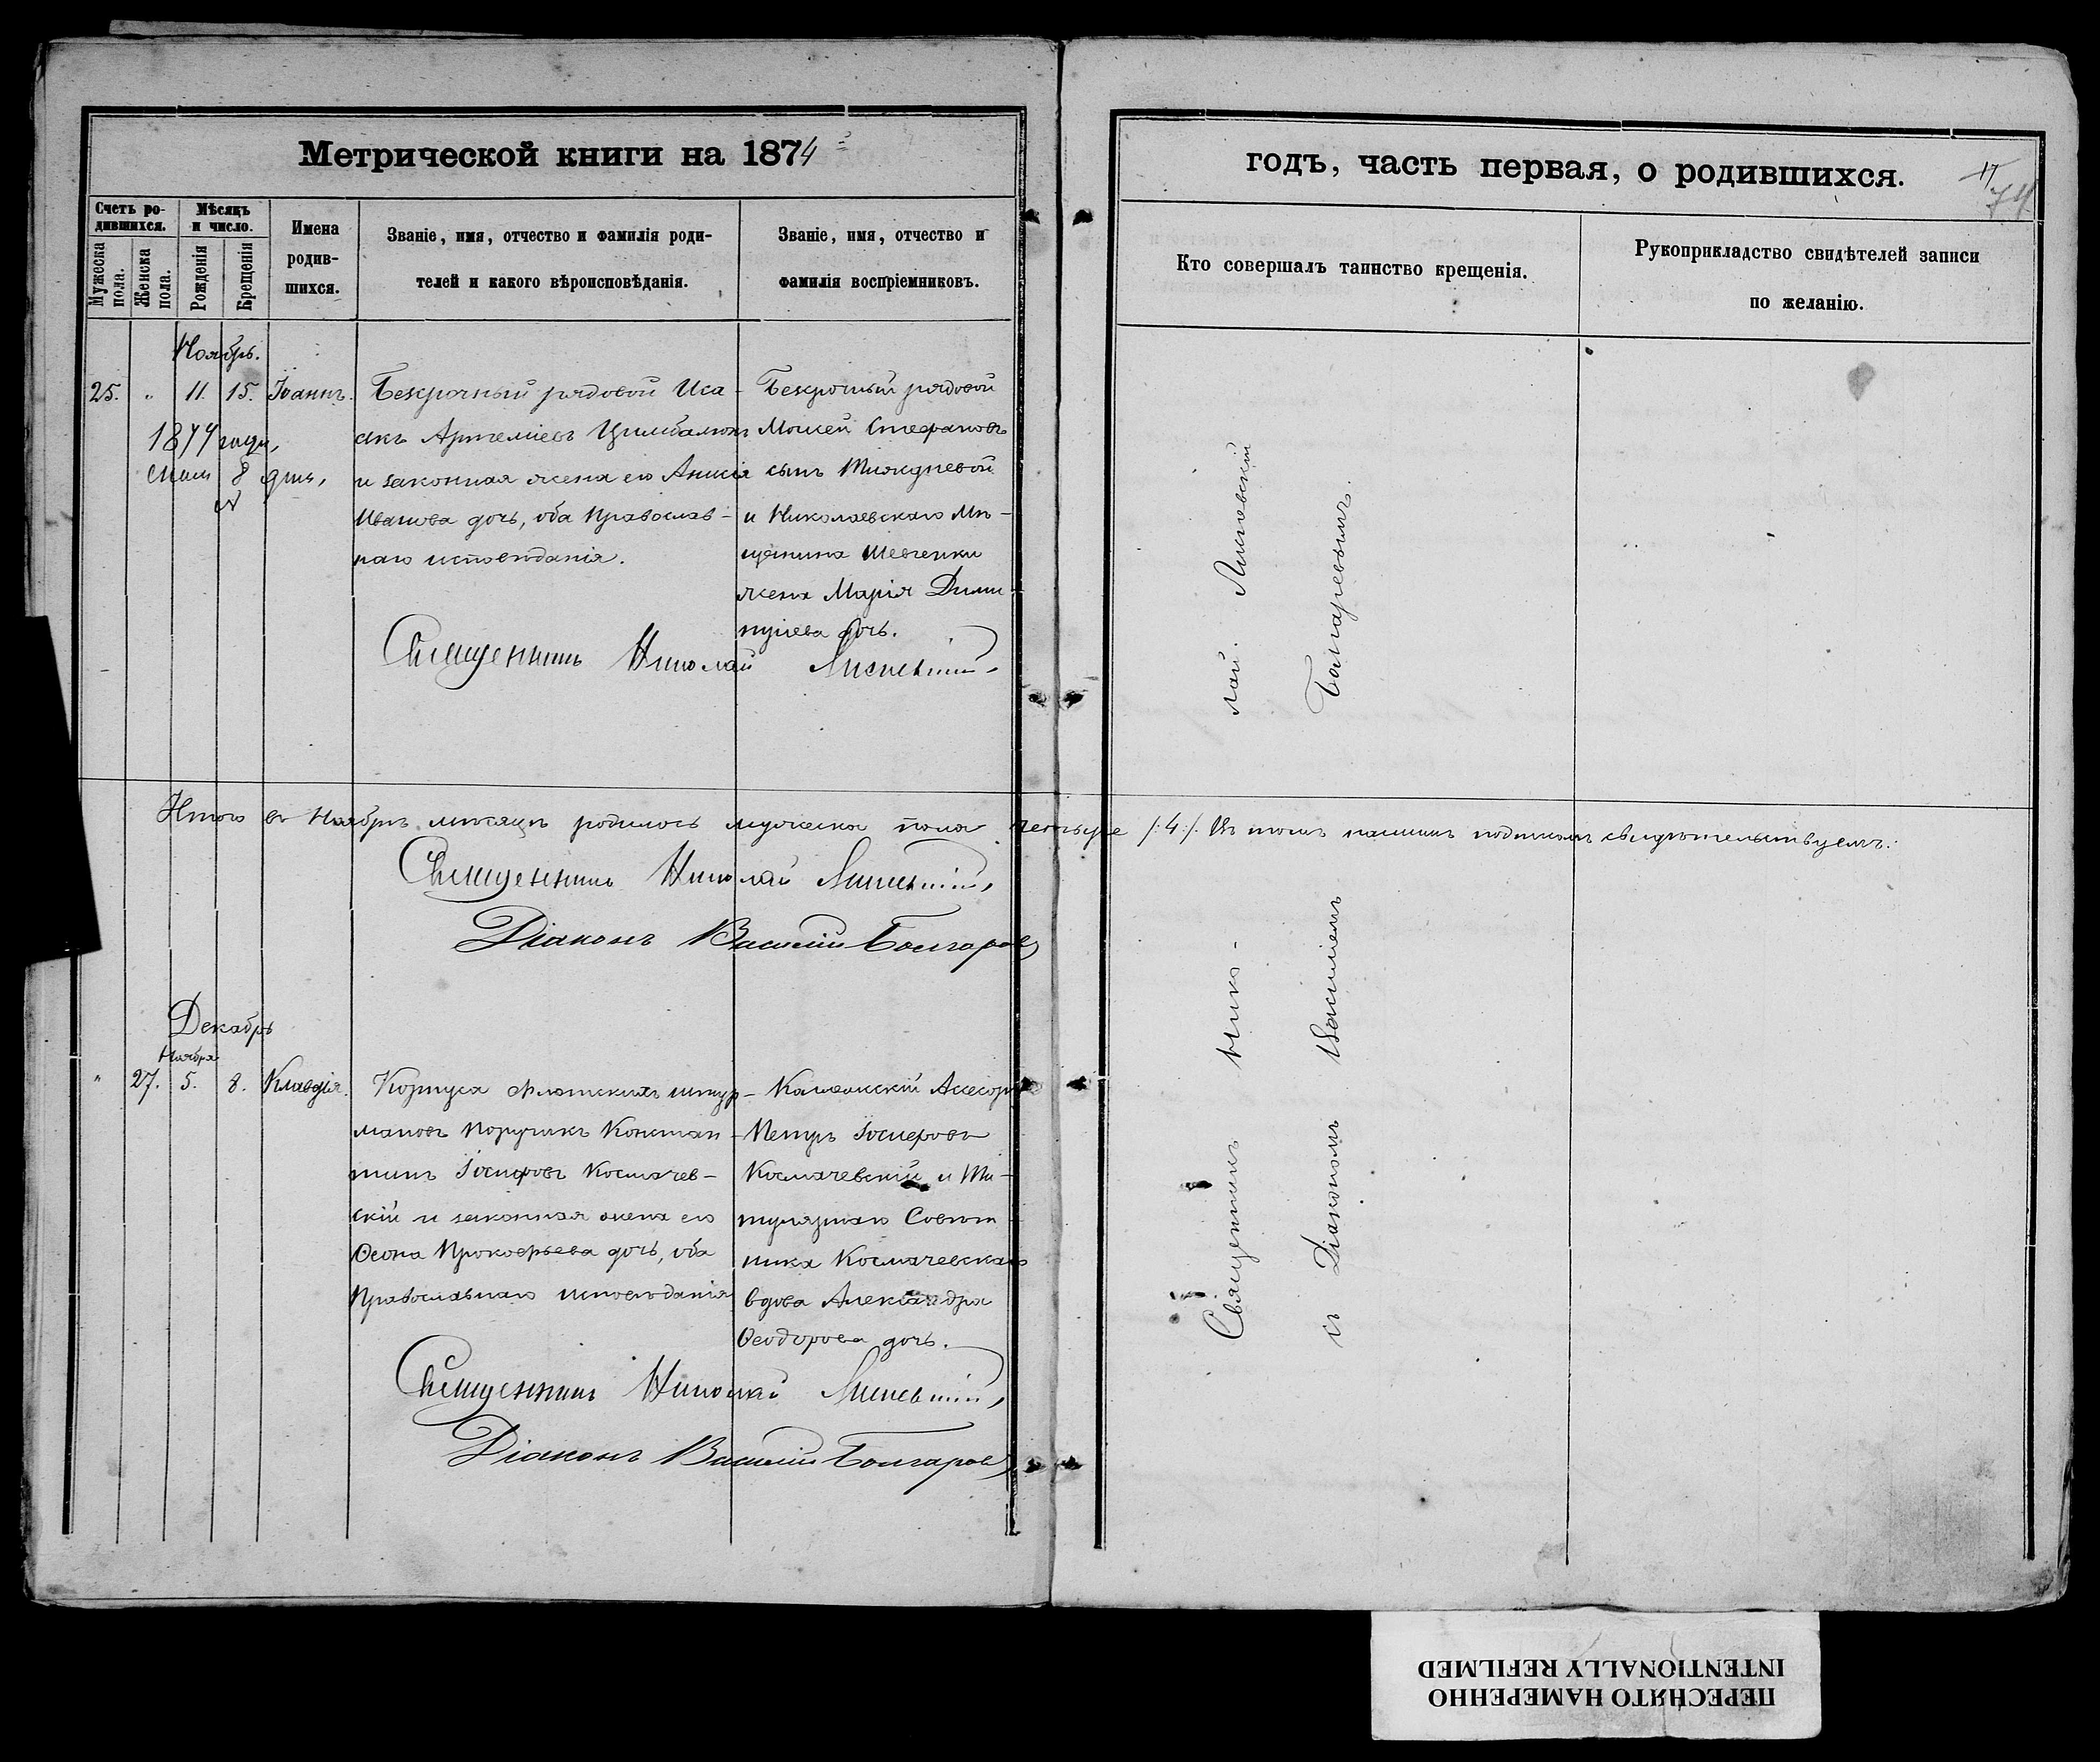 Метрической книги на 1874
годъ, часть первая, о родившихся.
17
74
Счетъ ро-
дившихся.
Мужеска пола.
Женска пола.
Мѣсяцъ
и число.
Рожденія
Крещенія
Имена
родив-
шихся.
Званіе, имя, отчество и фамилія роди-
телей и какого вѣроисповѣданія.
Званіе, имя, отчество и
фамилія воспріемниковъ.
Кто совершалъ таинство крещенія.
Рукоприкладство свидѣтелей записи
по желанію.
Ноябрь.
25. " 11. 15. Іоаннъ.
1874 года,
8 дня,
Безсрочный рядовой Иса-
акъ Артеміевъ Цимбалюкъ
и законная жена его Анисія
Иванова дочь, оба Православ-
наго исповѣданія.
Безсрочный рядовой
Моисей Стефановъ
сынъ
и Николаевскаго Мѣ-
щанина Шевченки
жена Марія Дими-
тріева дочь.
Священникъ Николай Лисневскій
Итого въ Ноябрѣ мѣсяцѣ родилось мужеска пола четыре /:4:/. Въ томъ нашимъ подписомъ свидѣтельствуемъ:
Священникъ Николай Лисневскій,
Діаконъ Василій Болгаровъ
Декабрь
Ноября
" 27. 5. 8. Клавдія.
Корпуса Флотскихъ штур-
мановъ Поручикъ Констан-
тинъ Іосифовъ Космачев-
скій и законная жена его
Прокофьева дочь, оба
Православнаго исповѣданія
Коллежскій Асесоръ
Петръ Іосифовъ
Космачевскій и Ти-
тулярнаго Совѣт-
ника Космачевскаго
вдова Александра
Ѳеодорова дочь.
Священникъ Николай Лисневскій,
Діаконъ Василій Болгаровъ
Священникъ Нико-лай Лисневскій
съ Діакономъ Василіемъ Болгаревымъ.
ПЕРЕСНЯТО НАМЕРЕННО
INTENTIONALLY REFILMED